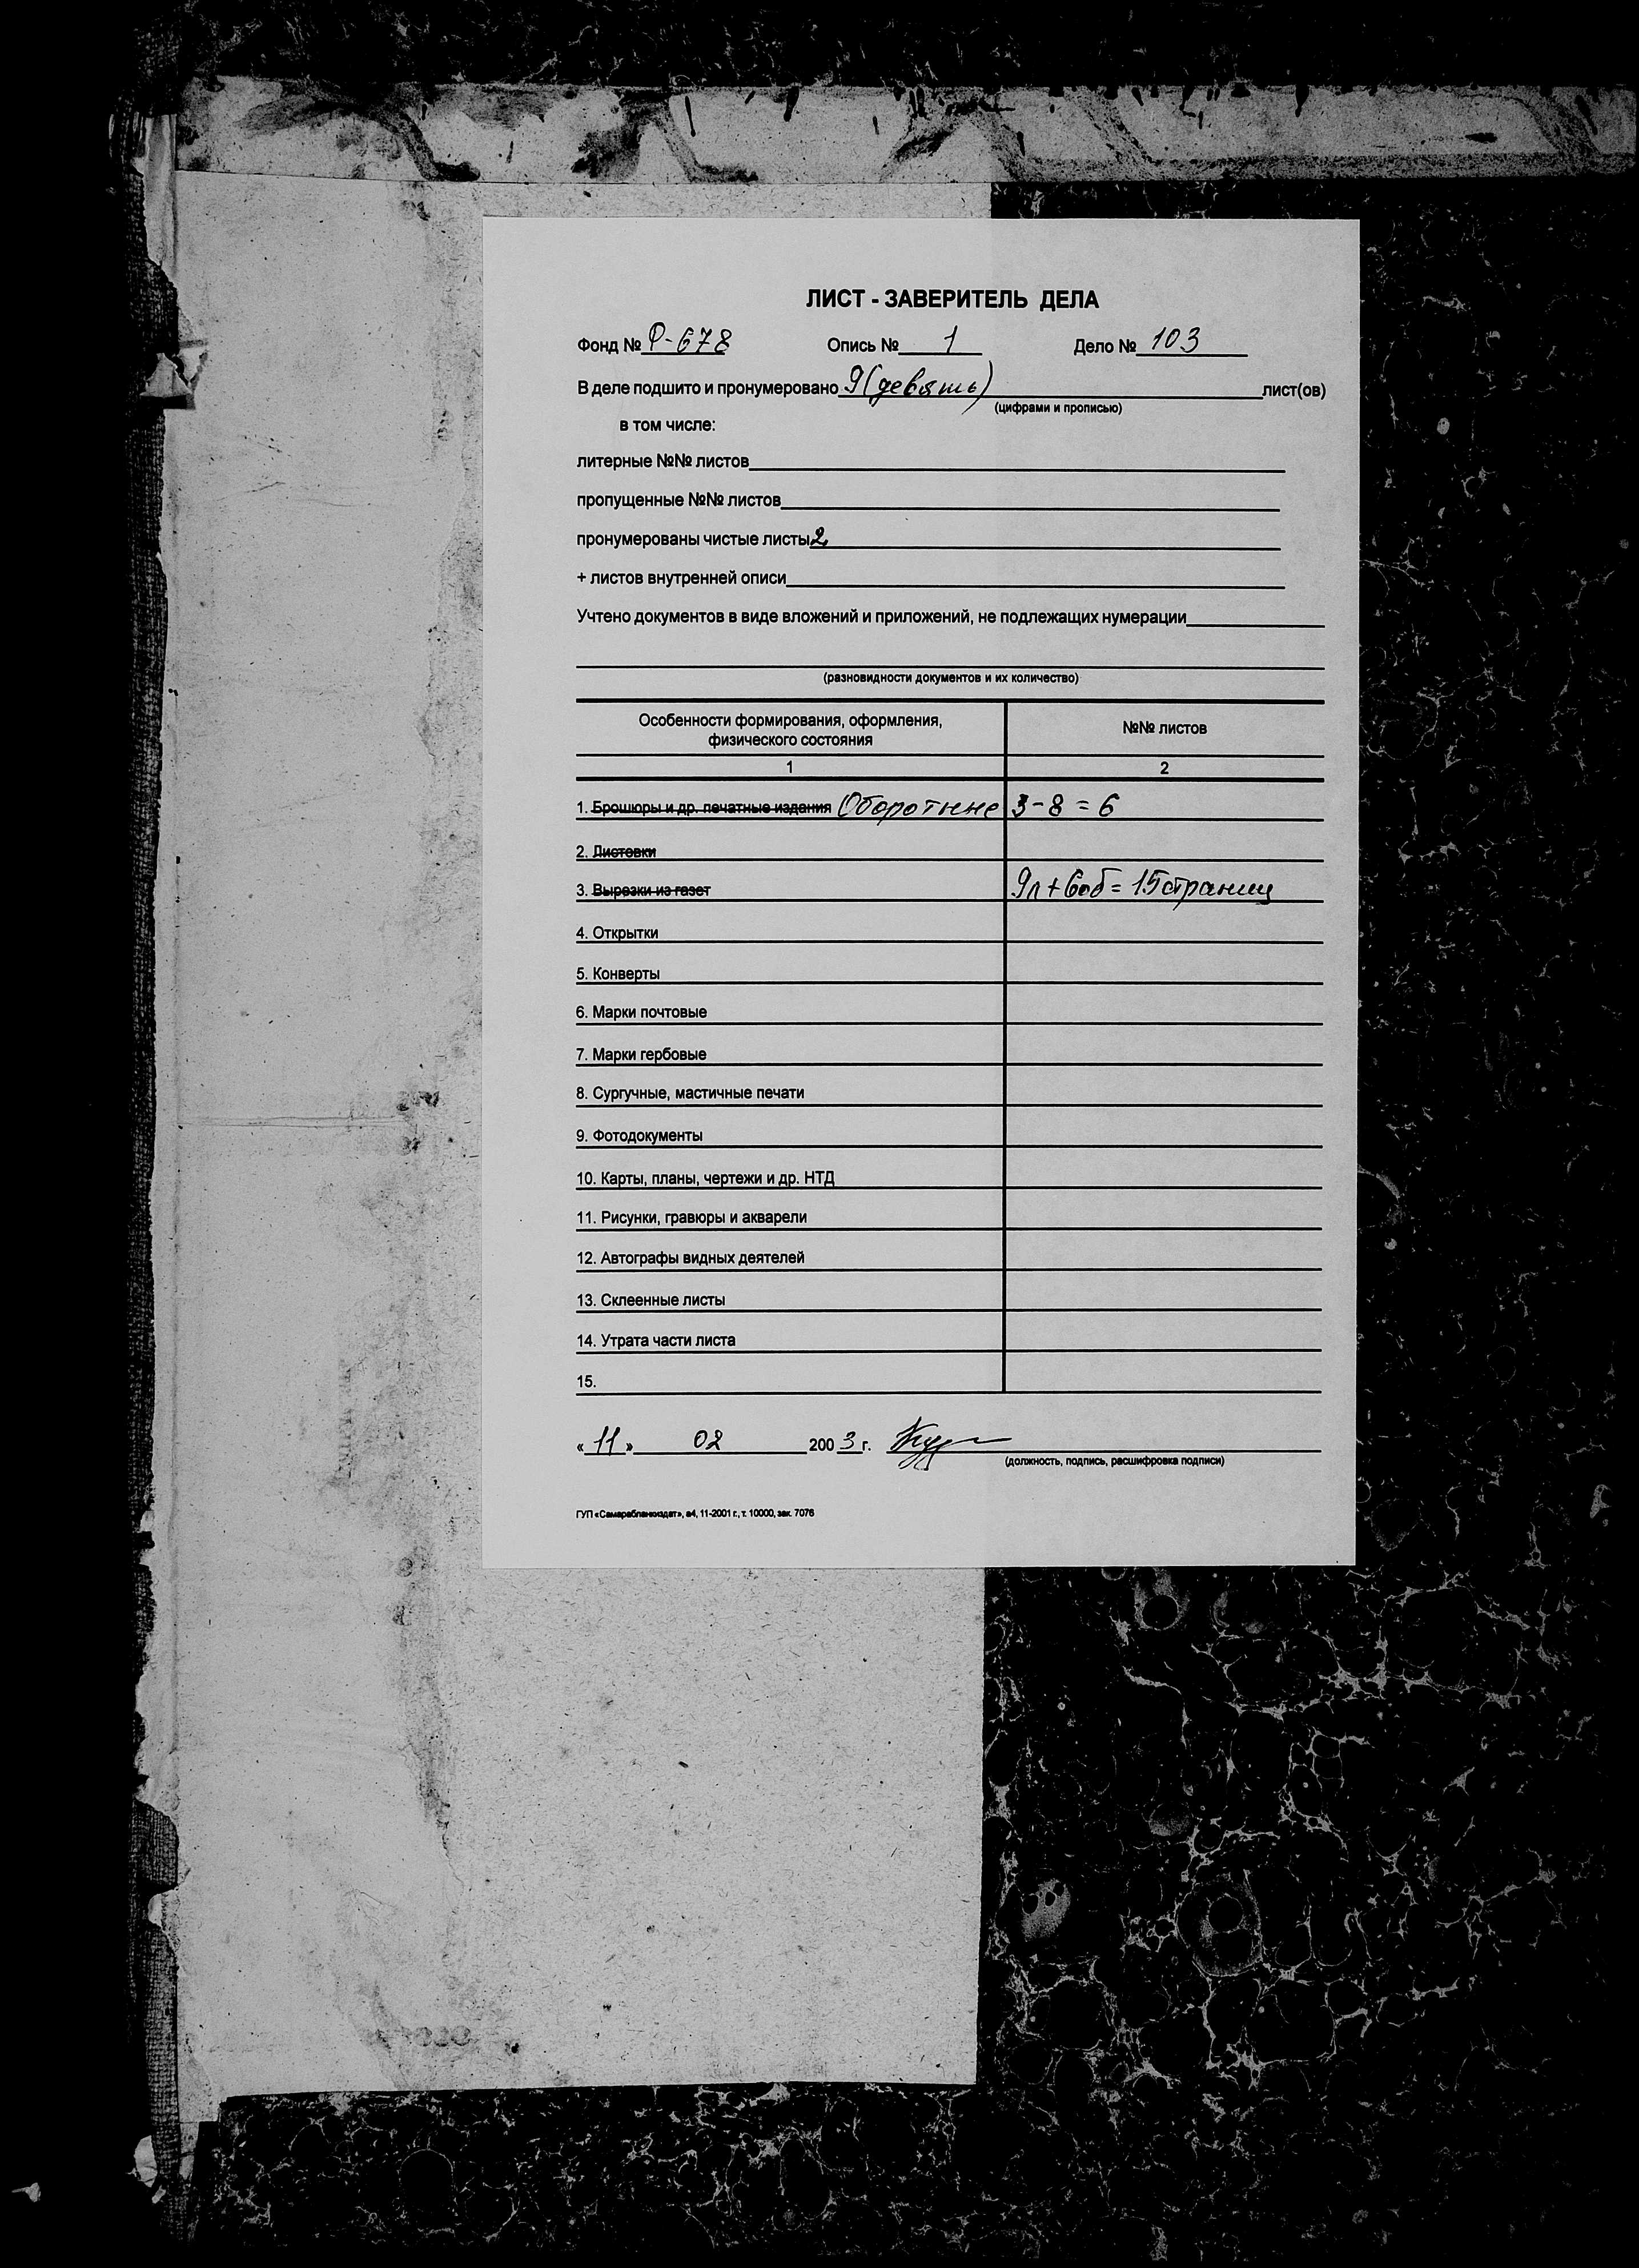 ЛИСТ - ЗАВЕРИТЕЛЬ ДЕЛА
Фонд № Р-678 Опись № 1 Дело № 103
В деле подшито и пронумеровано 9 (девять) лист(ов)
(цифрами и прописью)
в том числе:
литерные №№ листов
пропущенные №№ листов
пронумерованы чистые листы 2,
+ листов внутренней описи
Учтено документов в виде вложений и приложений, не подлежащих нумерации
(разновидности документов и их количество)
Особенности формирования, оформления, №№ листов
физического состояния
1 2
1. Брошюры и др. печатные издания Оборотные 3-8 = 6
2. Листовки
3. Вырезки из газет 9л + 6об = 15 страниц
4. Открытки
5. Конверты
6. Марки почтовые
7. Марки гербовые
8. Сургучные, мастичные печати
9. Фотодокументы
10. Карты, планы, чертежи и др. НТД
11. Рисунки, гравюры и акварели
12. Автографы видных деятелей
13. Склеенные листы
14. Утрата части листа
15.
« 11 » 02 2003 г.
(должность, подпись, расшифровка подписи)
ГУП «Самарабланкиздат», а4, 11-2001 г., т. 10000, зак. 7076